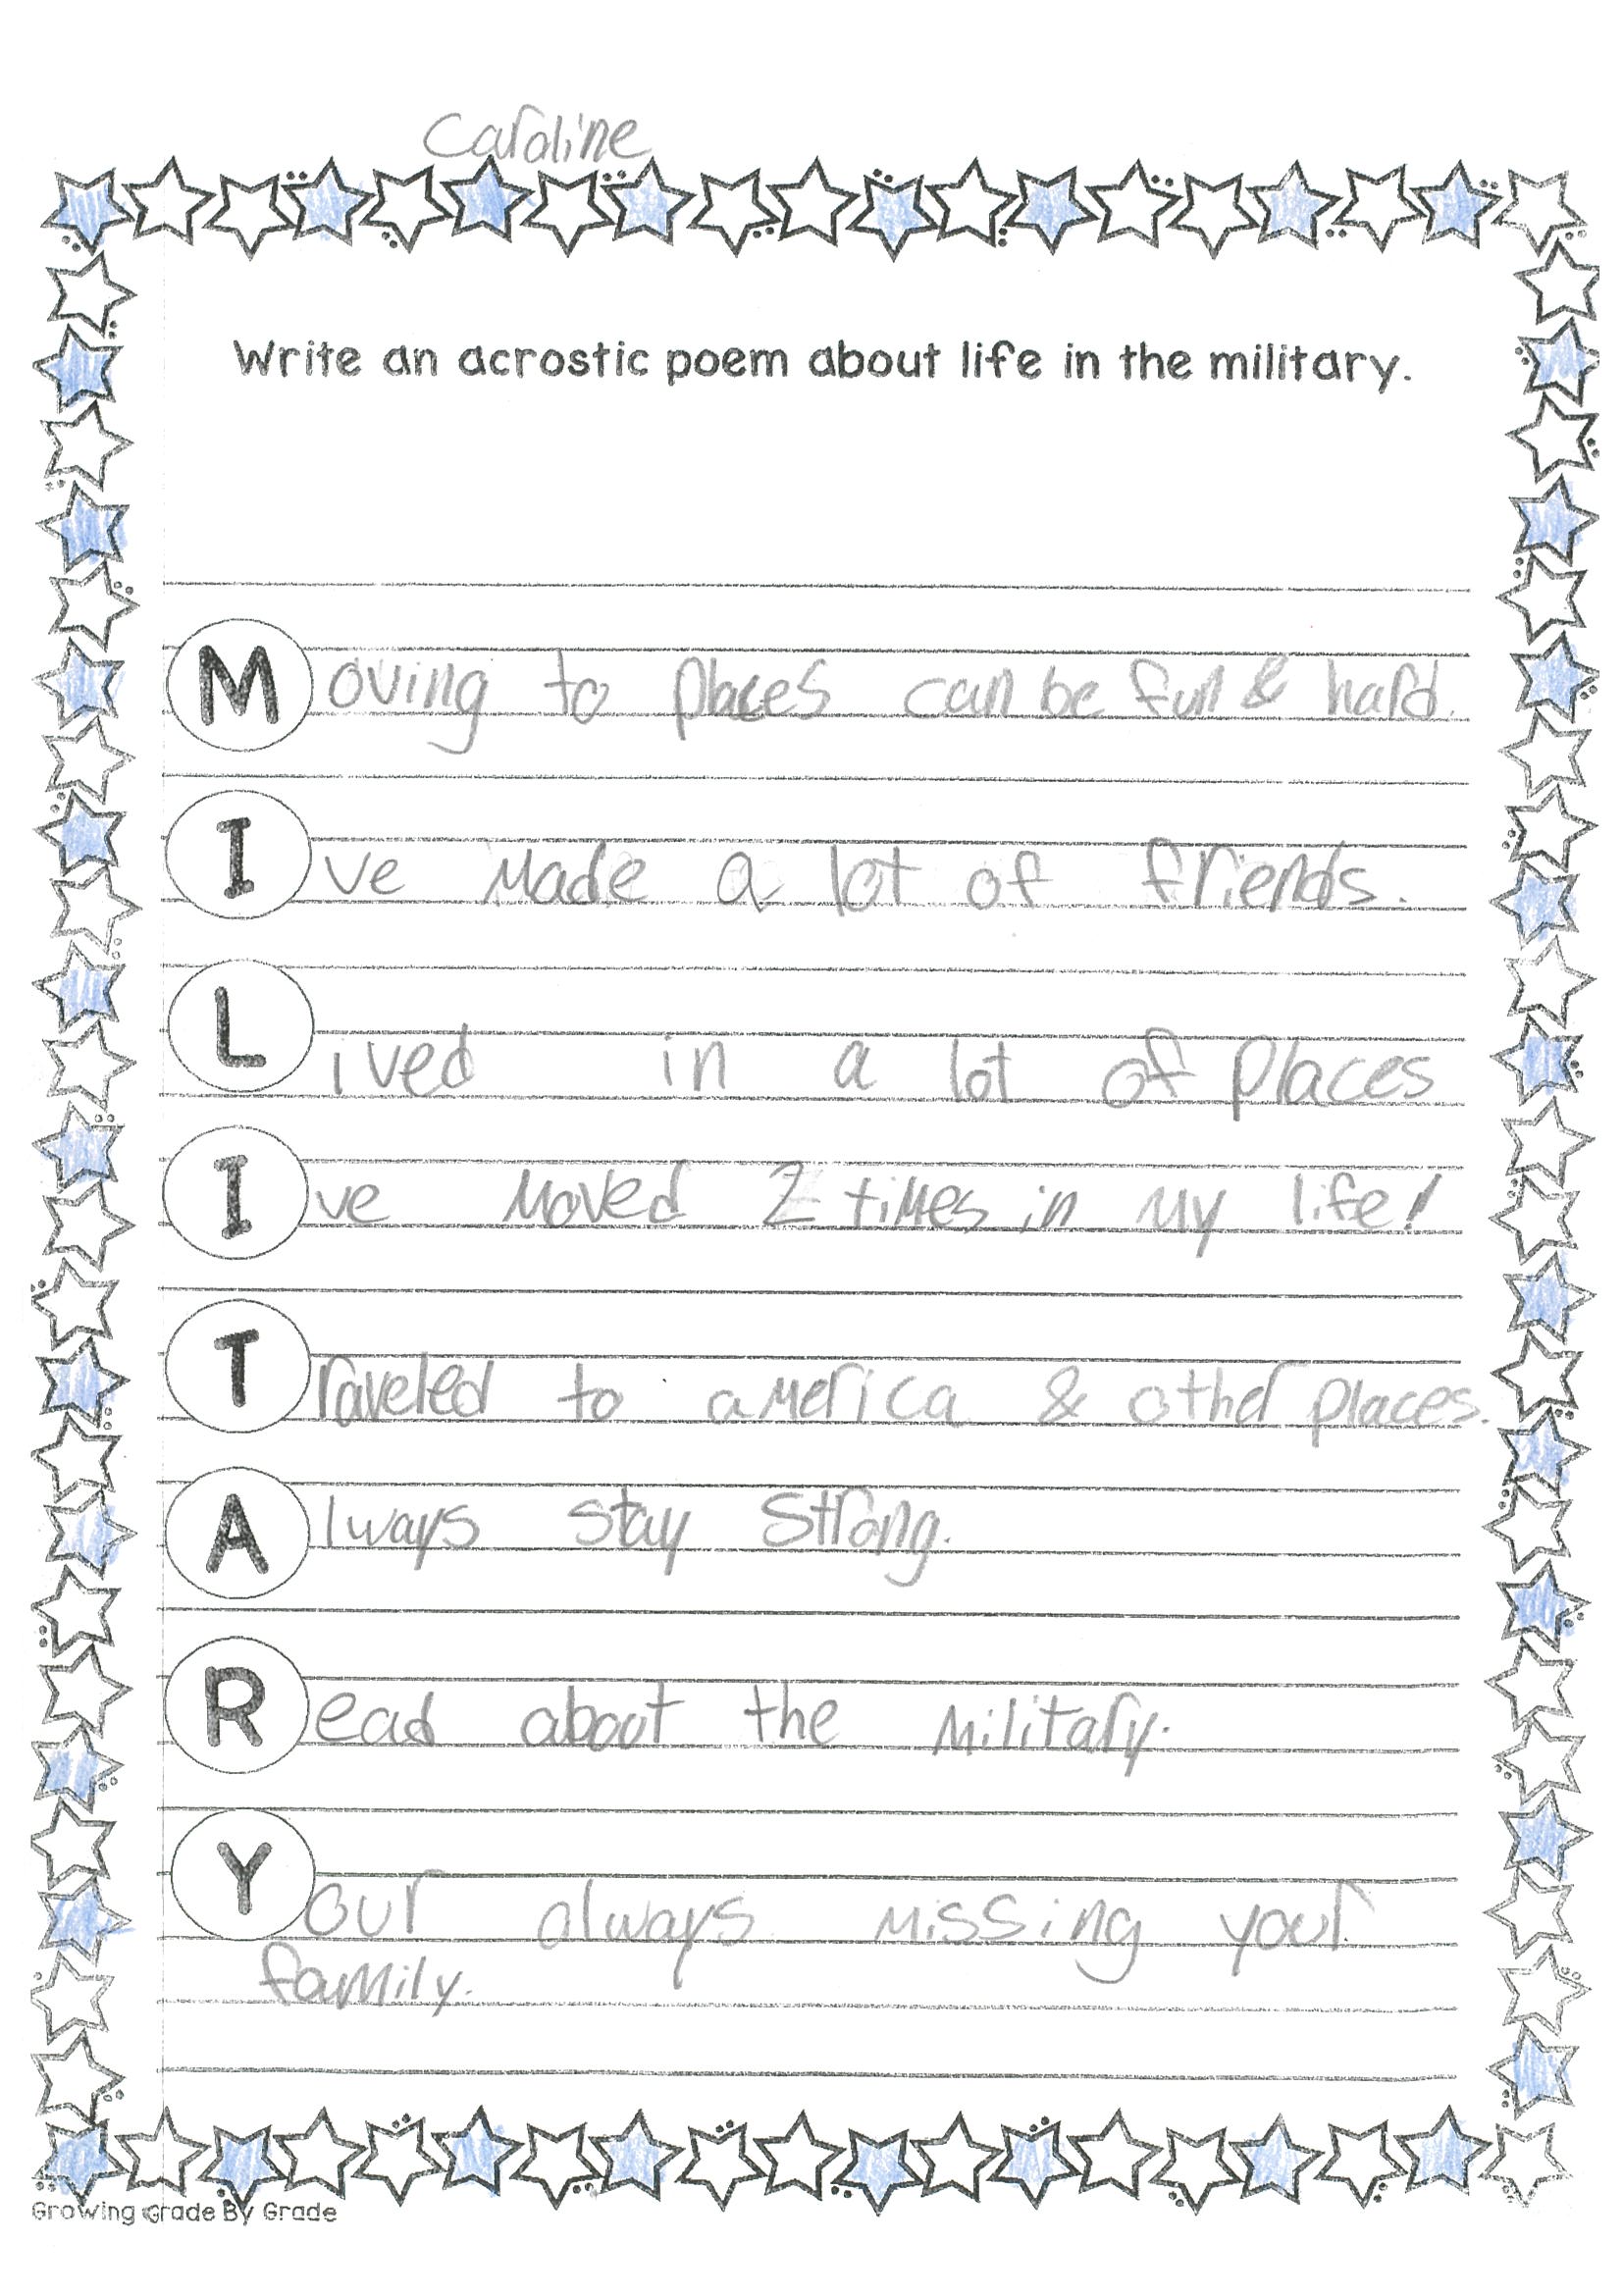 Caroline
Write an acrostic poem about life in the military.
Moving to places can be fun & hard.
Ive made a lot of friends.
Lived in a lot of places
Ive moved 2 times in my life!
Traveled to america & other places.
Always stay strong.
Read about the military.
Your always missing your
family.
Growing Grade By Grade